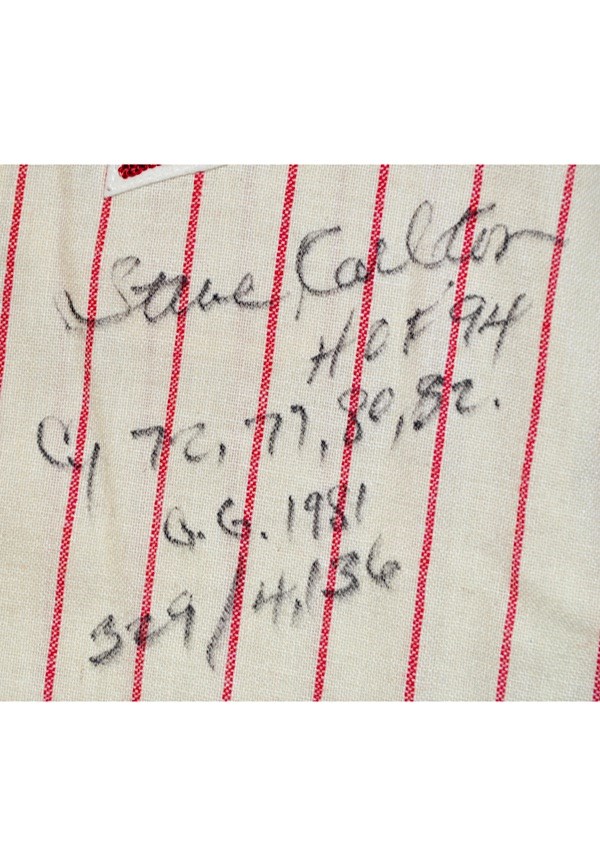 Steve Carlton
HOF 94
Cy 72, 77, 80, 82.
G.G. 1981
329/4,136